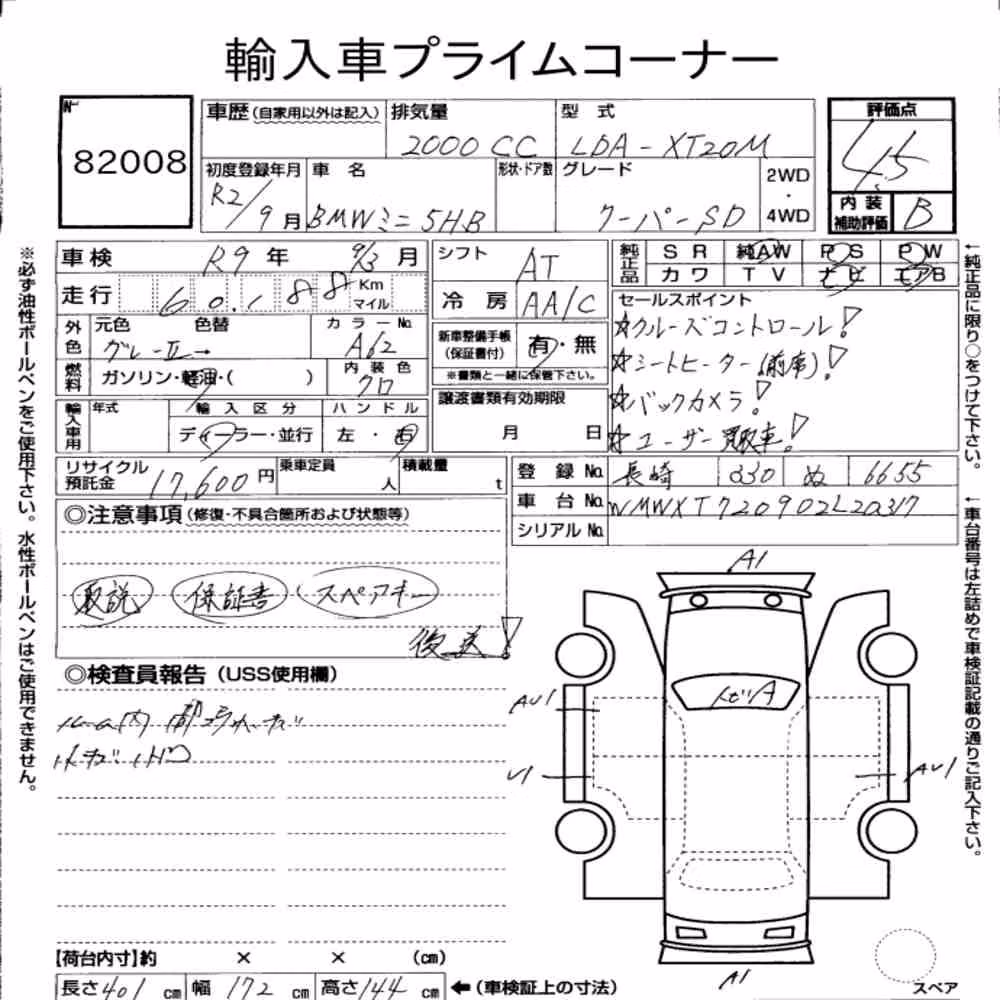 輸入車プライムコーナー
No. 82008
車歴(自家用以外は記入) 排気量 2000 CC 型式 LDA-XT20M
初度登録年月 R2/9月 車名 BMWミニ 5HB 形状・ドア数 グレード クーパーSD 2WD・4WD
評価点 4.5
内装補助評価 B
車検 R9年 9/3月
走行 60,188 Km マイル
外色 元色 グレーII 色替 → カラーNo. A62
燃料 ガソリン・軽油・( ) 内装色 クロ
輸入車用 年式 輸入区分 ディーラー・並行 ハンドル 左・右
リサイクル預託金 17,600円 乗車定員 人 積載量 t
シフト AT
冷房 AA/C
新車整備手帳(保証書付) 有・無
※書類と一緒に保管下さい。
譲渡書類有効期限 月 日
純正品 SR 純AW PS PW
カワ TV ナビ エアB
セールスポイント
☆クルーズコントロール!
☆シートヒーター(前席)!
☆バックカメラ!
☆ユーザー買取車!
登録No. 長崎 330 ぬ 6655
車台No. WMWXT720902L20317
シリアルNo.
◎注意事項(修復・不具合箇所および状態等)
取説 保証書 スペアキー
後送!
◎検査員報告(USS使用欄)
A1
AU1
U1
AU1
A1
スペア
【荷台内寸】約 × × (cm)
長さ401cm 幅172cm 高さ144cm ←(車検証上の寸法)
※必ず油性ボールペンをご使用下さい。水性ボールペンはご使用できません。
←純正品に限り○をつけて下さい。
←車台番号は左詰めで車検証記載の通りご記入下さい。